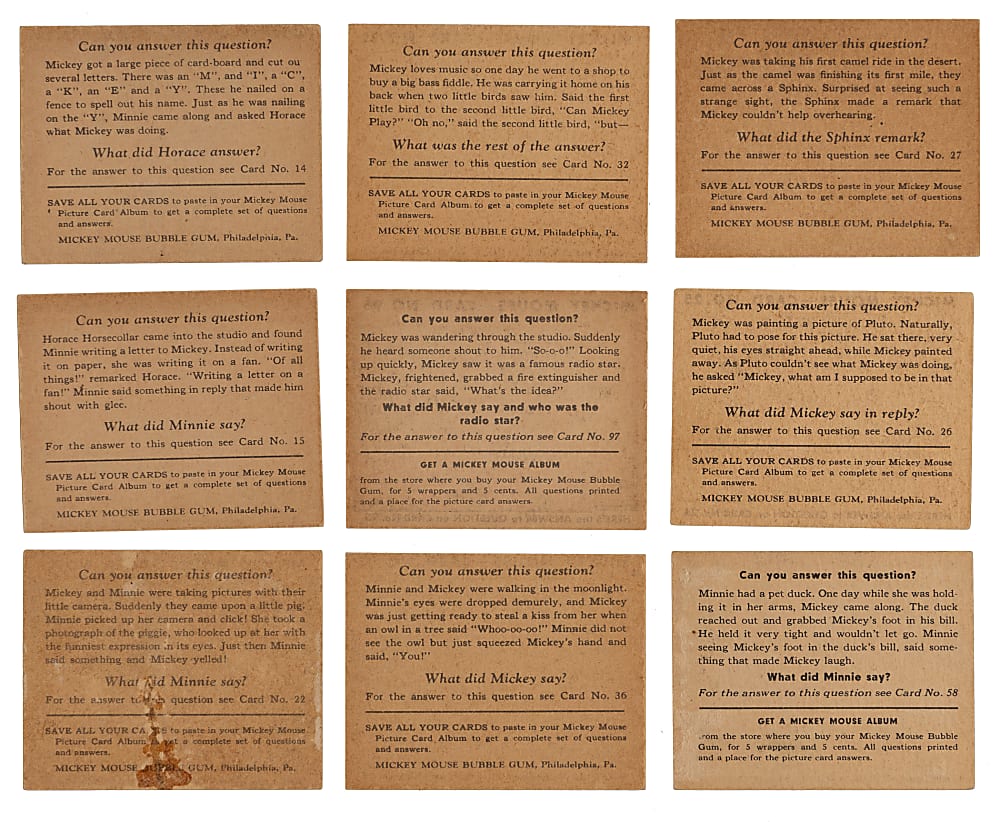 Can you answer this question?
Mickey got a large piece of card-board and cut ou
several letters. There was an "M", and "I", a "C",
a "K", an "E" and a "Y". These he nailed on a
fence to spell out his name. Just as he was nailing
on the "Y", Minnie came along and asked Horace
what Mickey was doing.
What did Horace answer?
For the answer to this question see Card No. 14
SAVE ALL YOUR CARDS to paste in your Mickey Mouse
Picture Card Album to get a complete set of questions
and answers.
MICKEY MOUSE BUBBLE GUM, Philadelphia, Pa.
Can you answer this question?
Mickey loves music so one day he went to a shop to
buy a big bass fiddle. He was carrying it home on his
back when two little birds saw him. Said the first
little bird to the second little bird, "Can Mickey
Play?" "Oh no," said the second little bird, "but—
What was the rest of the answer?
For the answer to this question see Card No. 32
SAVE ALL YOUR CARDS to paste in your Mickey Mouse
Picture Card Album to get a complete set of questions
and answers.
MICKEY MOUSE BUBBLE GUM, Philadelphia, Pa.
Can you answer this question?
Mickey was taking his first camel ride in the desert.
Just as the camel was finishing its first mile, they
came across a Sphinx. Surprised at seeing such a
strange sight, the Sphinx made a remark that
Mickey couldn't help overhearing.
What did the Sphinx remark?
For the answer to this question see Card No. 27
SAVE ALL YOUR CARDS to paste in your Mickey Mouse
Picture Card Album to get a complete set of questions
and answers.
MICKEY MOUSE BUBBLE GUM, Philadelphia, Pa.
Can you answer this question?
Horace Horsecollar came into the studio and found
Minnie writing a letter to Mickey. Instead of writing
it on paper, she was writing it on a fan. "Of all
things!" remarked Horace. "Writing a letter on a
fan!" Minnie said something in reply that made him
shout with glee.
What did Minnie say?
For the answer to this question see Card No. 15
SAVE ALL YOUR CARDS to paste in your Mickey Mouse
Picture Card Album to get a complete set of questions
and answers.
MICKEY MOUSE BUBBLE GUM, Philadelphia, Pa.
Can you answer this question?
Mickey was wandering through the studio. Suddenly
he heard someone shout to him. "So-o-o!" Looking
up quickly, Mickey saw it was a famous radio star.
Mickey, frightened, grabbed a fire extinguisher and
the radio star said, "What's the idea?"
What did Mickey say and who was the
radio star?
For the answer to this question see Card No. 97
GET A MICKEY MOUSE ALBUM
from the store where you buy your Mickey Mouse Bubble
Gum, for 5 wrappers and 5 cents. All questions printed
and a place for the picture card answers.
Can you answer this question?
Mickey was painting a picture of Pluto. Naturally,
Pluto had to pose for this picture. He sat there, very
quiet, his eyes straight ahead, while Mickey painted
away. As Pluto couldn't see what Mickey was doing,
he asked "Mickey, what am I supposed to be in that
picture?"
What did Mickey say in reply?
For the answer to this question see Card No. 26
SAVE ALL YOUR CARDS to paste in your Mickey Mouse
Picture Card Album to get a complete set of questions
and answers.
MICKEY MOUSE BUBBLE GUM, Philadelphia, Pa.
Can you answer this question?
Mickey and Minnie were taking pictures with their
little camera. Suddenly they came upon a little pig.
Minnie picked up her camera and click! She took a
photograph of the piggie, who looked up at her with
the funniest expression in its eyes. Just then Minnie
said something and Mickey yelled!
What did Minnie say?
For the answer to question see Card No. 22
SAVE ALL YOUR to paste in your Mickey Mouse
Picture Card Album get a complete set of questions
and answers.
MICKEY MOUSE GUM, Philadelphia, Pa.
Can you answer this question?
Minnie and Mickey were walking in the moonlight.
Minnie's eyes were dropped demurely, and Mickey
was just getting ready to steal a kiss from her when
an owl in a tree said "Whoo-oo-oo!" Minnie did not
see the owl but just squeezed Mickey's hand and
said, "You!"
What did Mickey say?
For the answer to this question see Card No. 36
SAVE ALL YOUR CARDS to paste in your Mickey Mouse
Picture Card Album to get a complete set of questions
and answers.
MICKEY MOUSE BUBBLE GUM, Philadelphia, Pa.
Can you answer this question?
Minnie had a pet duck. One day while she was hold-
ing it in her arms, Mickey came along. The duck
reached out and grabbed Mickey's foot in his bill.
He held it very tight and wouldn't let go. Minnie
seeing Mickey's foot in the duck's bill, said some-
thing that made Mickey laugh.
What did Minnie say?
For the answer to this question see Card No. 58
GET A MICKEY MOUSE ALBUM
from the store where you buy your Mickey Mouse Bubble
Gum, for 5 wrappers and 5 cents. All questions printed
and a place for the picture card answers.